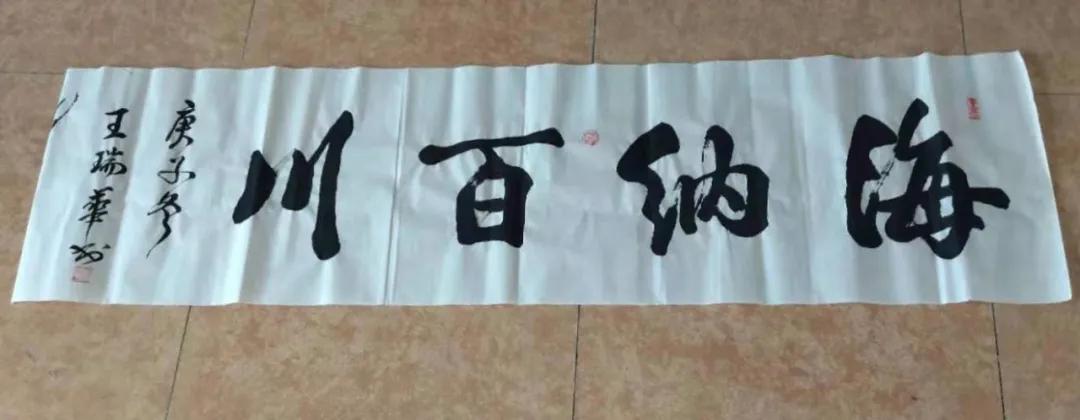 海纳百川
庚子冬
王瑞華书